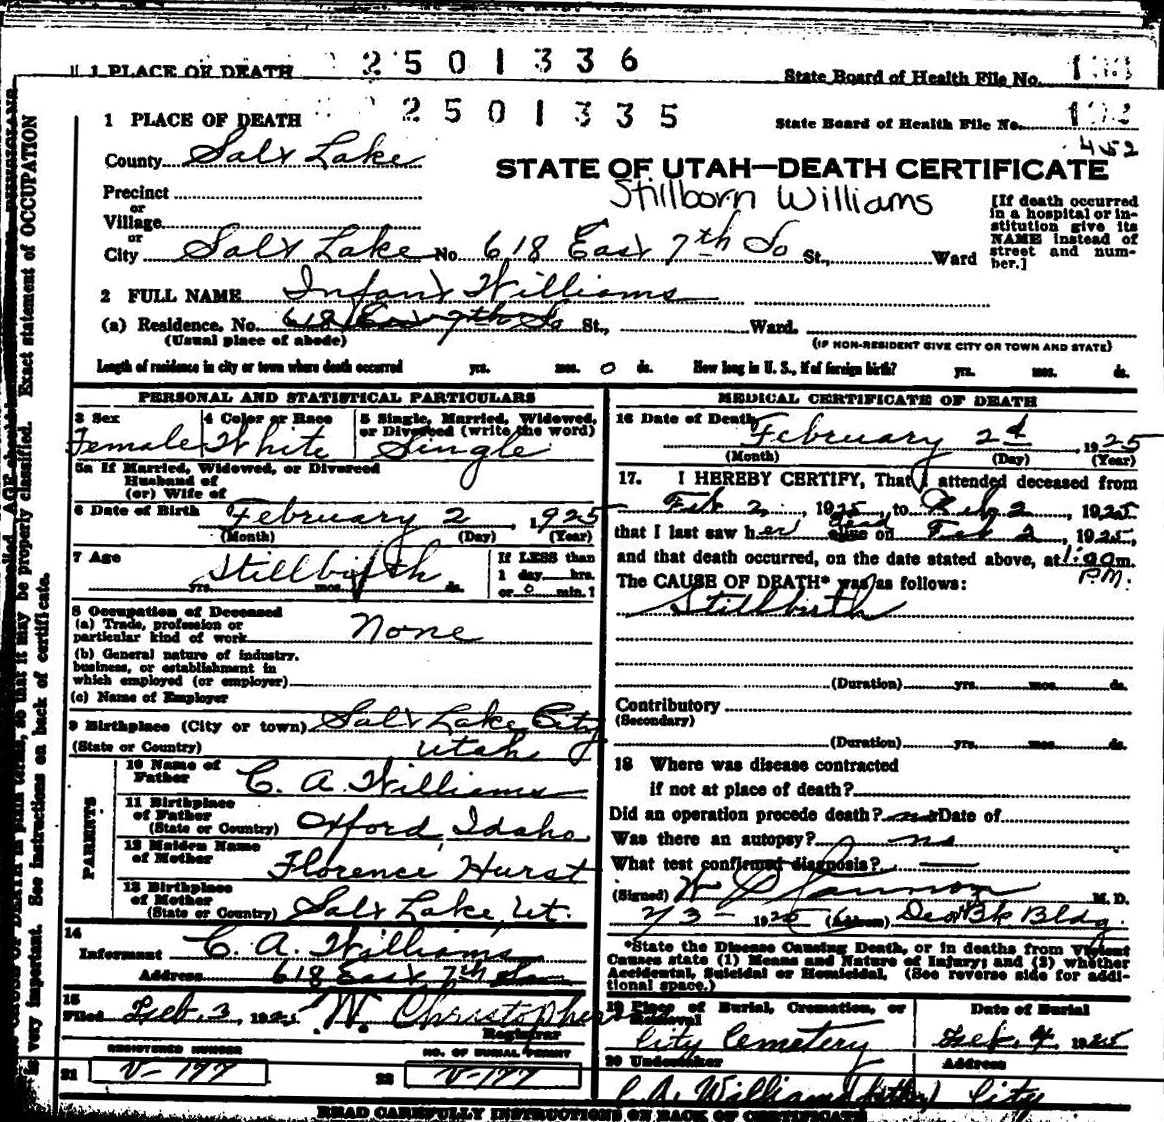 1 PLACE OF DEATH 2501336 State Board of Health File No.
1 PLACE OF DEATH 2501335 State Board of Health File No.
452
County Salt Lake
STATE OF UTAH—DEATH CERTIFICATE
Stillborn Williams
Precinct
or
Village
or
City Salt Lake No. 618 East 7th So St., Ward
[If death occurred
in a hospital or in-
stitution give its
NAME instead of
street and num-
ber.]
2 FULL NAME Infant Williams
(a) Residence. No. 618 East 7th So St., Ward.
(Usual place of abode) (IF NON-RESIDENT GIVE CITY OR TOWN AND STATE)
Length of residence in city or town where death occurred yrs. mos. 0 ds. How long in U. S., if of foreign birth? yrs. mos. ds.
PERSONAL AND STATISTICAL PARTICULARS
3 Sex 4 Color or Race 5 Single, Married, Widowed,
or Divorced (write the word)
Female White Single
5a If Married, Widowed, or Divorced
Husband of
(or) Wife of
6 Date of Birth February 2, 1925
(Month) (Day) (Year)
7 Age Stillbirth
yrs. mos. ds.
If LESS than
1 day hrs.
or 0 min.?
8 Occupation of Deceased
(a) Trade, profession or
particular kind of work None
(b) General nature of industry,
business, or establishment in
which employed (or employer)
(c) Name of Employer
9 Birthplace (City or town) Salt Lake City
(State or Country) Utah
PARENTS
10 Name of
Father C. A. Williams
11 Birthplace
of Father
(State or Country) Oxford, Idaho
12 Maiden Name
of Mother Florence Hurst
13 Birthplace
of Mother
(State or Country) Salt Lake, Ut.
14
Informant C. A. Williams
Address 618 East 7th So
15
Filed Feb. 3, 1925 W. Christopherson
Registrar
REGISTERED NUMBER NO. OF BURIAL PERMIT
21 V-177 22 V-177
MEDICAL CERTIFICATE OF DEATH
16 Date of Death February 2d, 1925
(Month) (Day) (Year)
17. I HEREBY CERTIFY, That I attended deceased from
Feb 2, 1925, to Feb 2, 1925
that I last saw her alive dead on Feb 2, 1925,
and that death occurred, on the date stated above, at 1:00 m.
P.M.
The CAUSE OF DEATH* was as follows:
Stillbirth
(Duration) yrs. mos. ds.
Contributory
(Secondary)
(Duration) yrs. mos. ds.
18 Where was disease contracted
if not at place of death?
Did an operation precede death? no Date of
Was there an autopsy? no
What test confirmed diagnosis?
(Signed) M. D.
2/3- 1925 (Address) Des Bk Bldg.
*State the Disease Causing Death, or in deaths from Violent
Causes state (1) Means and Nature of Injury; and (2) whether
Accidental, Suicidal or Homicidal. (See reverse side for addi-
tional space.)
19 Place of Burial, Cremation, or
Removal
Date of Burial
City Cemetery Feb. 4, 1925
20 Undertaker Address
C. A. Williams (father) City
READ CAREFULLY INSTRUCTIONS ON BACK OF CERTIFICATE
Exact statement of OCCUPATION
is very important. See instructions on back of certificate.